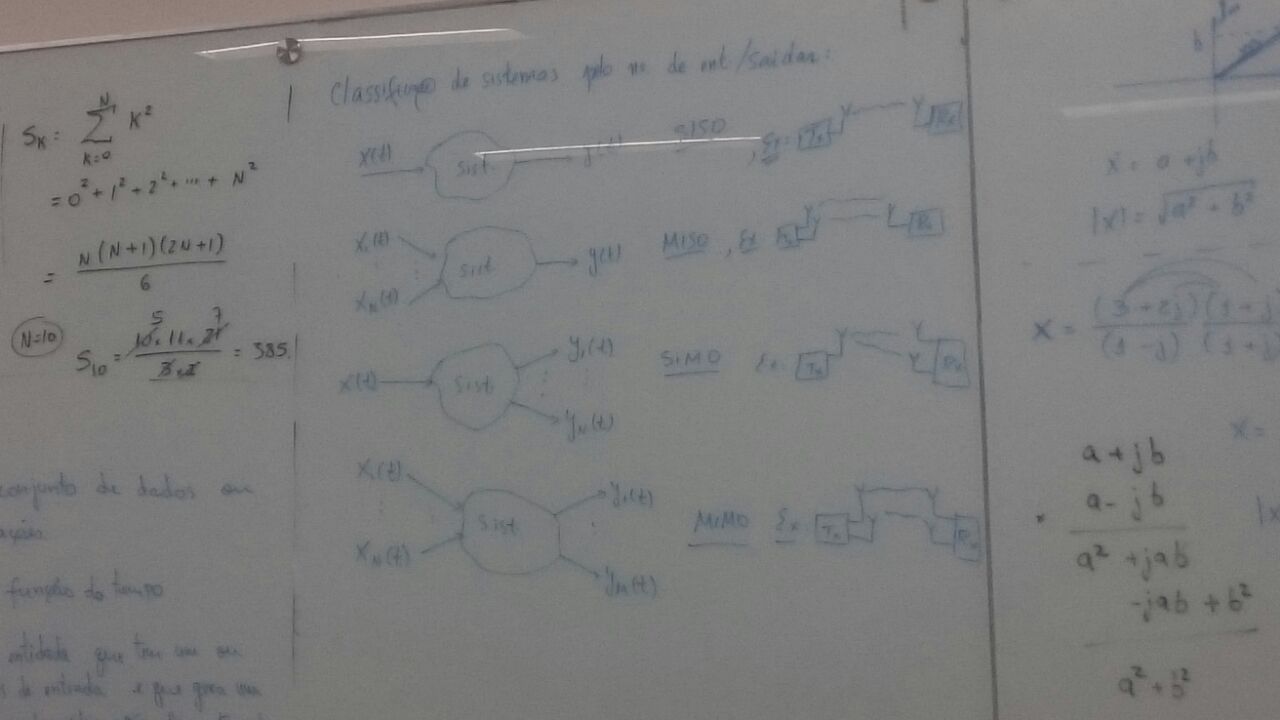 S_K = \sum_{K=0}^{N} K²
= 0² + 1² + 2² + ... + N²
= N(N+1)(2N+1) / 6
N=10
S_10 = 10.11.21 / 3.2 = 385
5 7
conjunto de dados ou
função do tempo
entidade que tem um ou
de entrada e que gera
Classificação de sistemas pelo nº de ent/saídas:
x(t) Sist. y(t) SISO, Ex: Tx Rx
X₁(t)
Sist y(t) MISO, Ex Tx Rx
X_N(t)
y₁(t)
x(t) Sist SIMO Ex: Tx Rx
y_N(t)
X₁(t) y₁(t)
Sist MIMO Ex: Tx Rx
X_N(t) y_M(t)
b
x = a + jb
|x| = √(a² + b²)
X = (3 + 2j)(1 + j / (1 - j)(1 + j
X =
|x
a + jb
× a - jb
a² + jab
-jab + b²
a² + b²